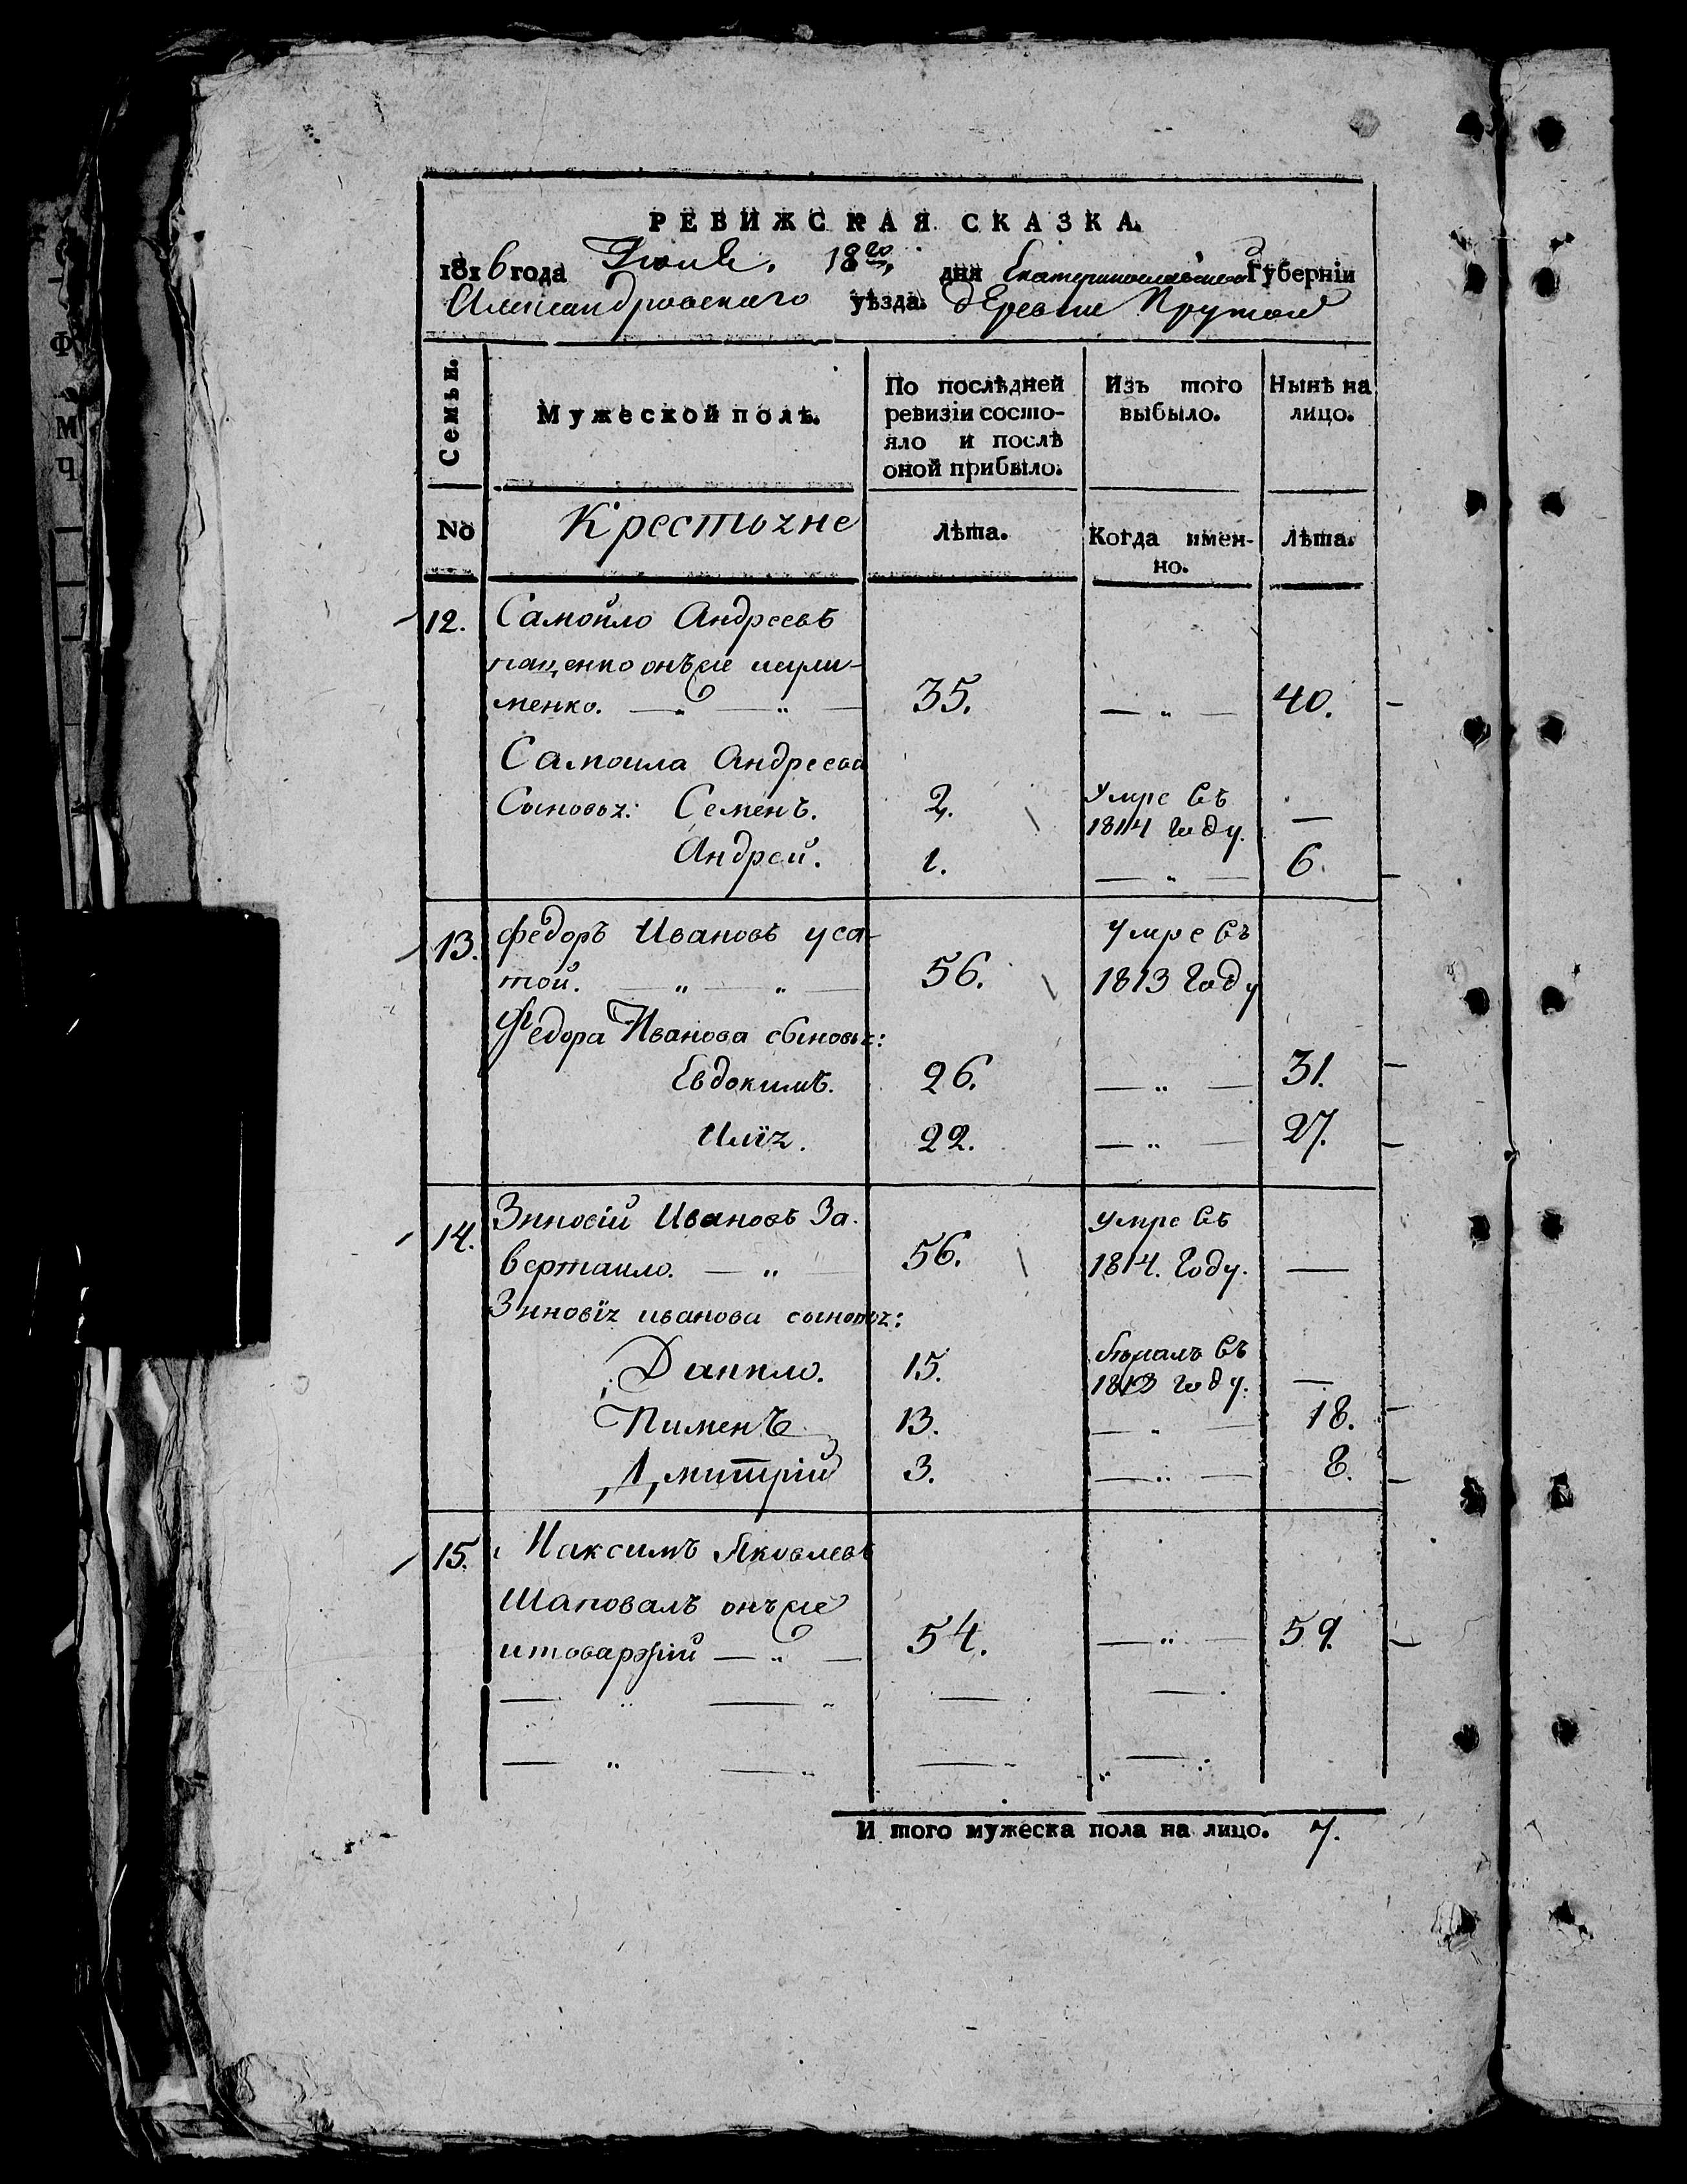 РЕВИЖСКАЯ СКАЗКА.
1816 года Июля. 18го. дня Екатеринославской Губерніи
Александровскаго уѣзда. деревни Крутой
Семьи. Мужеской полъ. По послѣдней ревизіи состояло и послѣ оной прибыло. Изъ того выбыло. Нынѣ на лицо.
No Крестьяне Лѣта. Когда имен-но. Лѣта.
12. Самойло Андреевъ
пащенко онъже
менко. — „ — „ — 35. — „ — 40.
Самоила Андреева
Сыновья: Семенъ. 2. Умре въ 1814 году. —
Андрей. 1. — „ — 6.
13. федоръ Ивановъ уса-
той. — „ — „ — 56. Умре въ 1813 Году
Федора Иванова сыновья:
Евдокимъ. 26. — „ — 31.
Илія. 22. — „ — 27.
14. Зиновій Ивановъ За-
вертаило. — „ — 56. умре въ 1814. Году. —
Зиновія иванова сыновья:
Данило. 15. бѣжалъ въ 1813 году. —
Пименъ 13. — „ — 18.
Дмитрій 3. — „ — 8.
15. Максимъ Яковлевъ
Шаповалъ онъже
— „ — 54. — „ — 59.
И того мужеска пола на лицо. 7.
Ф
М
Ч